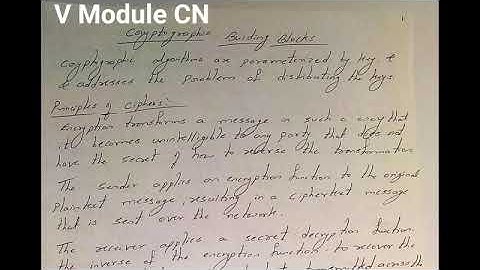 V Module CN
Cryptographic Building Blocks
Cryptographic algorithms are parameterized by key &
& addresses the problem of distributing the keys
Principles of ciphers:
Encryption transforms a message in such a way that
it becomes unintelligible to any party that does not
have the secret of how to reverse the transformation
The sender applies an encryption function to the original
plaintext message, resulting in a ciphertext message
that is sent over the network.
The receiver applies a secret decryption function
the inverse of the encryption function to recover the